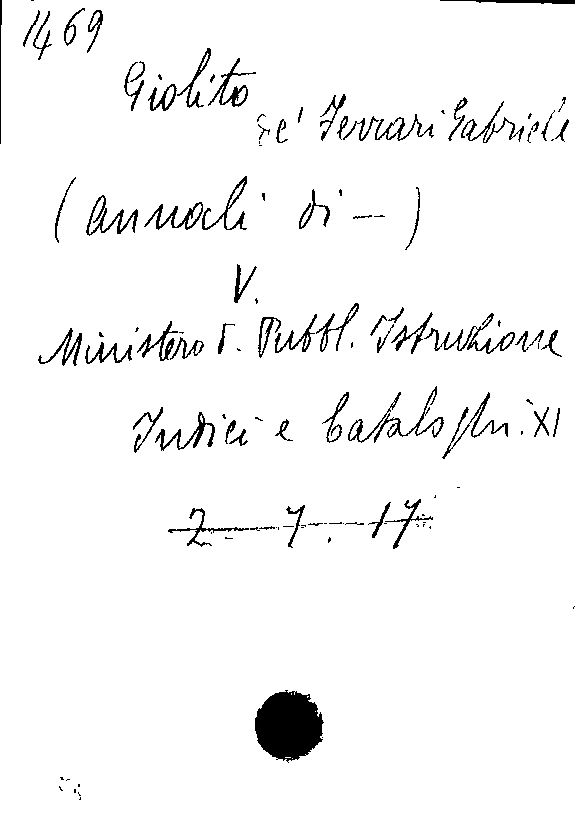 1469
Giolito
de' Ferrari Gabriele
(annali di — )
V.
Ministero d. Pubbl. Istruzione
Indici e Cataloghi. XI
2. 7. 17